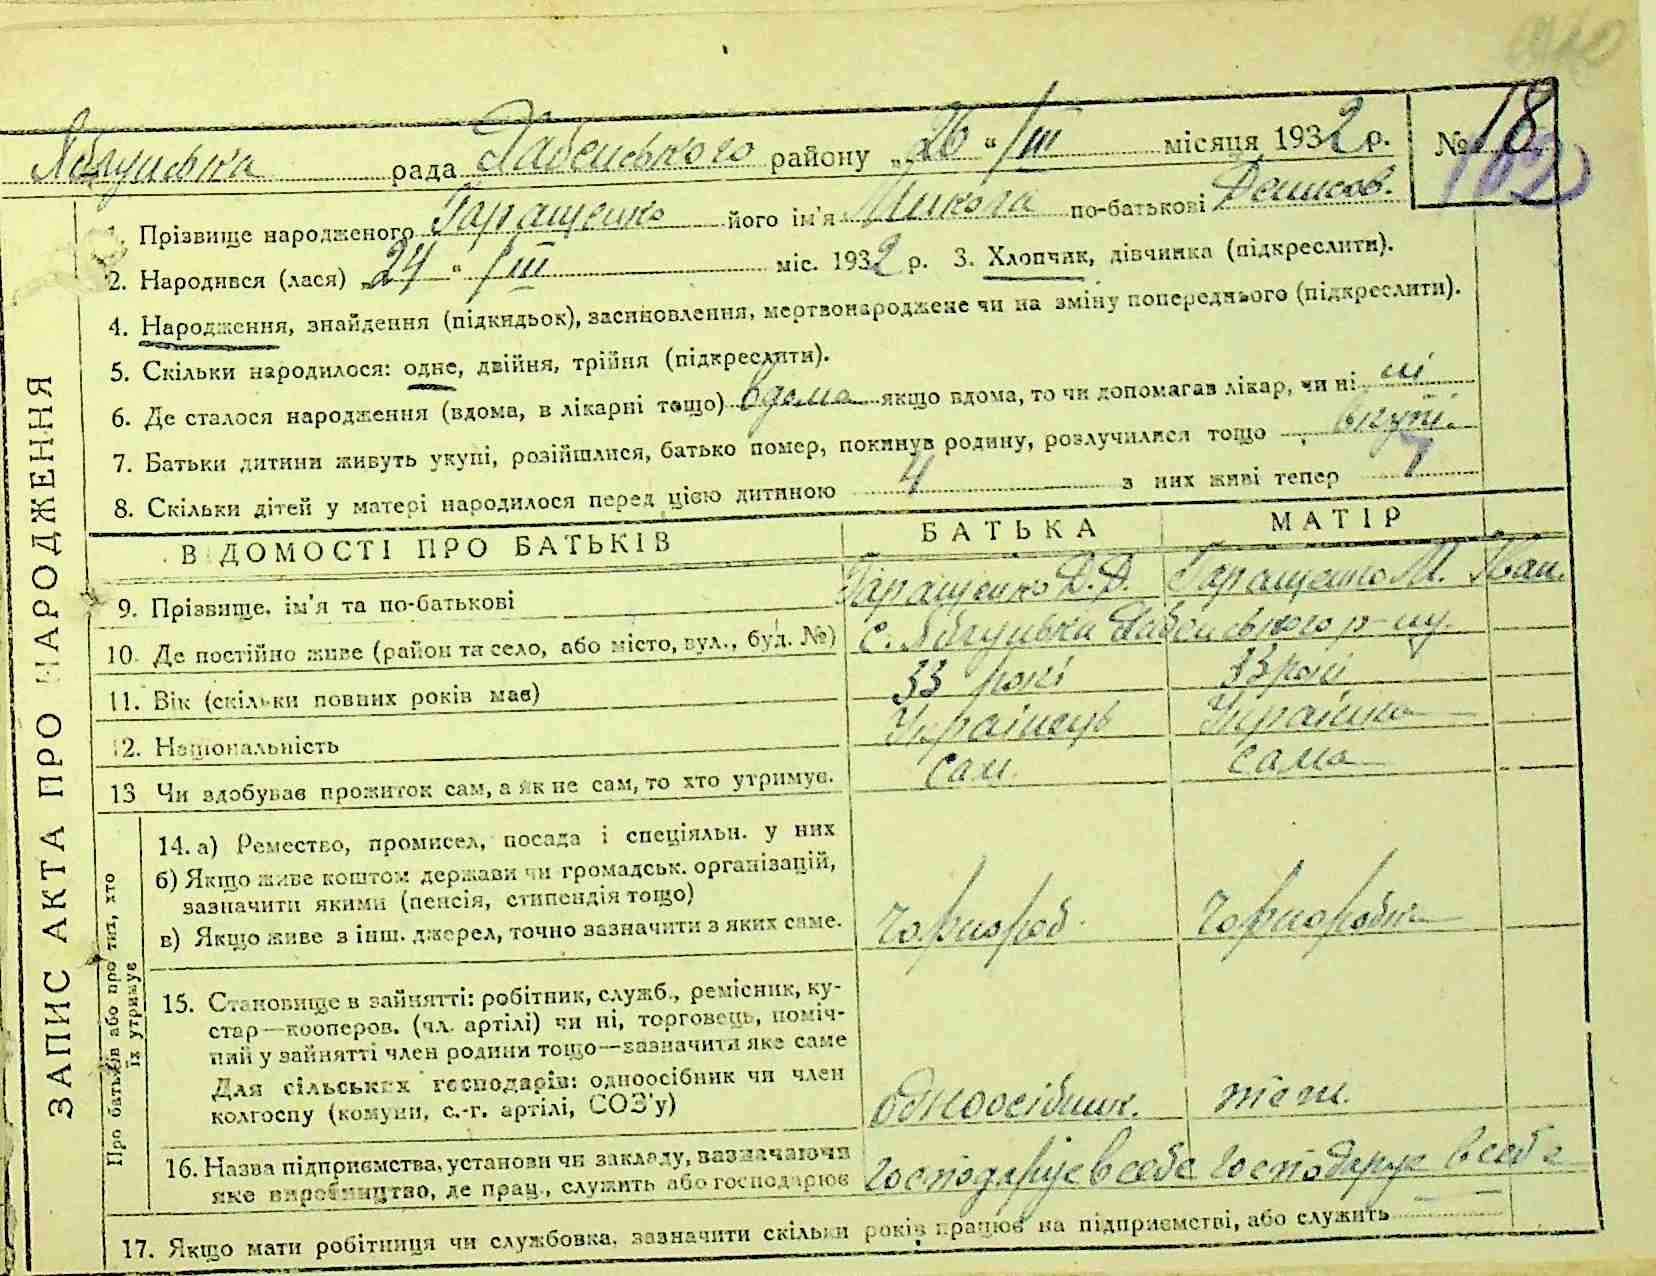 рада Хабенського району „26“ /III місяця 1932 р. № 18
102
1. Прізвище народженого Гаращенко його ім'я Микола по-батькові Денисов.
2. Народився (лася) „24“ /III міс. 1932 р. 3. Хлопчик, дівчинка (підкреслити).
4. Народження, знайдення (підкидьок), засиновлення, мертвонароджене чи на зміну попереднього (підкреслити).
5. Скільки народилося: одне, двійня, трійня (підкреслити).
6. Де сталося народження (вдома, в лікарні тощо) вдома якщо вдома, то чи допомагав лікар, чи ні ні
7. Батьки дитини живуть укупі, розійшлися, батько помер, покинув родину, розлучилися тощо вкупі.
8. Скільки дітей у матері народилося перед цією дитиною 4 з них живі тепер
ВІДОМОСТІ ПРО БАТЬКІВ БАТЬКА МАТІР
9. Прізвище, ім'я та по-батькові Гаращенко Д. Д. Гаращенко М. Іван.
10. Де постійно живе (район та село, або місто, вул., буд. №) с. Хабенського р-ну.
11. Вік (скільки повних років має) 33 рокі 33 рокі
12. Національність Українець Українка
13 Чи здобував прожиток сам, а як не сам, то хто утримує. сам. сама
14. а) Ремество, промисел, посада і спеціяльн. у них
б) Якщо живе коштом держави чи громадськ. організацій,
зазначити якими (пенсія, стипендія тощо)
в) Якщо живе з інш. джерел, точно зазначити з яких саме. чорнороб. чорноробка
15. Становище в зайнятті: робітник, служб., ремісник, ку-
стар—кооперов. (чл. артілі) чи ні, торговець, поміч-
ний у зайнятті член родини тощо—зазначити яке саме
Для сільських господарів: одноосібник чи член
колгоспу (комуни, с.-г. артілі, СОЗ'у) одноосібник. теж.
16. Назва підприємства, установи чи закладу, зазначаючи
яке виробництво, де прац., служить або господарює господарує в себе господарує в себе
17. Якщо мати робітниця чи службовка, зазначити скільки років працює на підприємстві, або служить
ЗАПИС АКТА ПРО НАРОДЖЕННЯ
Про батьків або про тих, хто
їх утримує